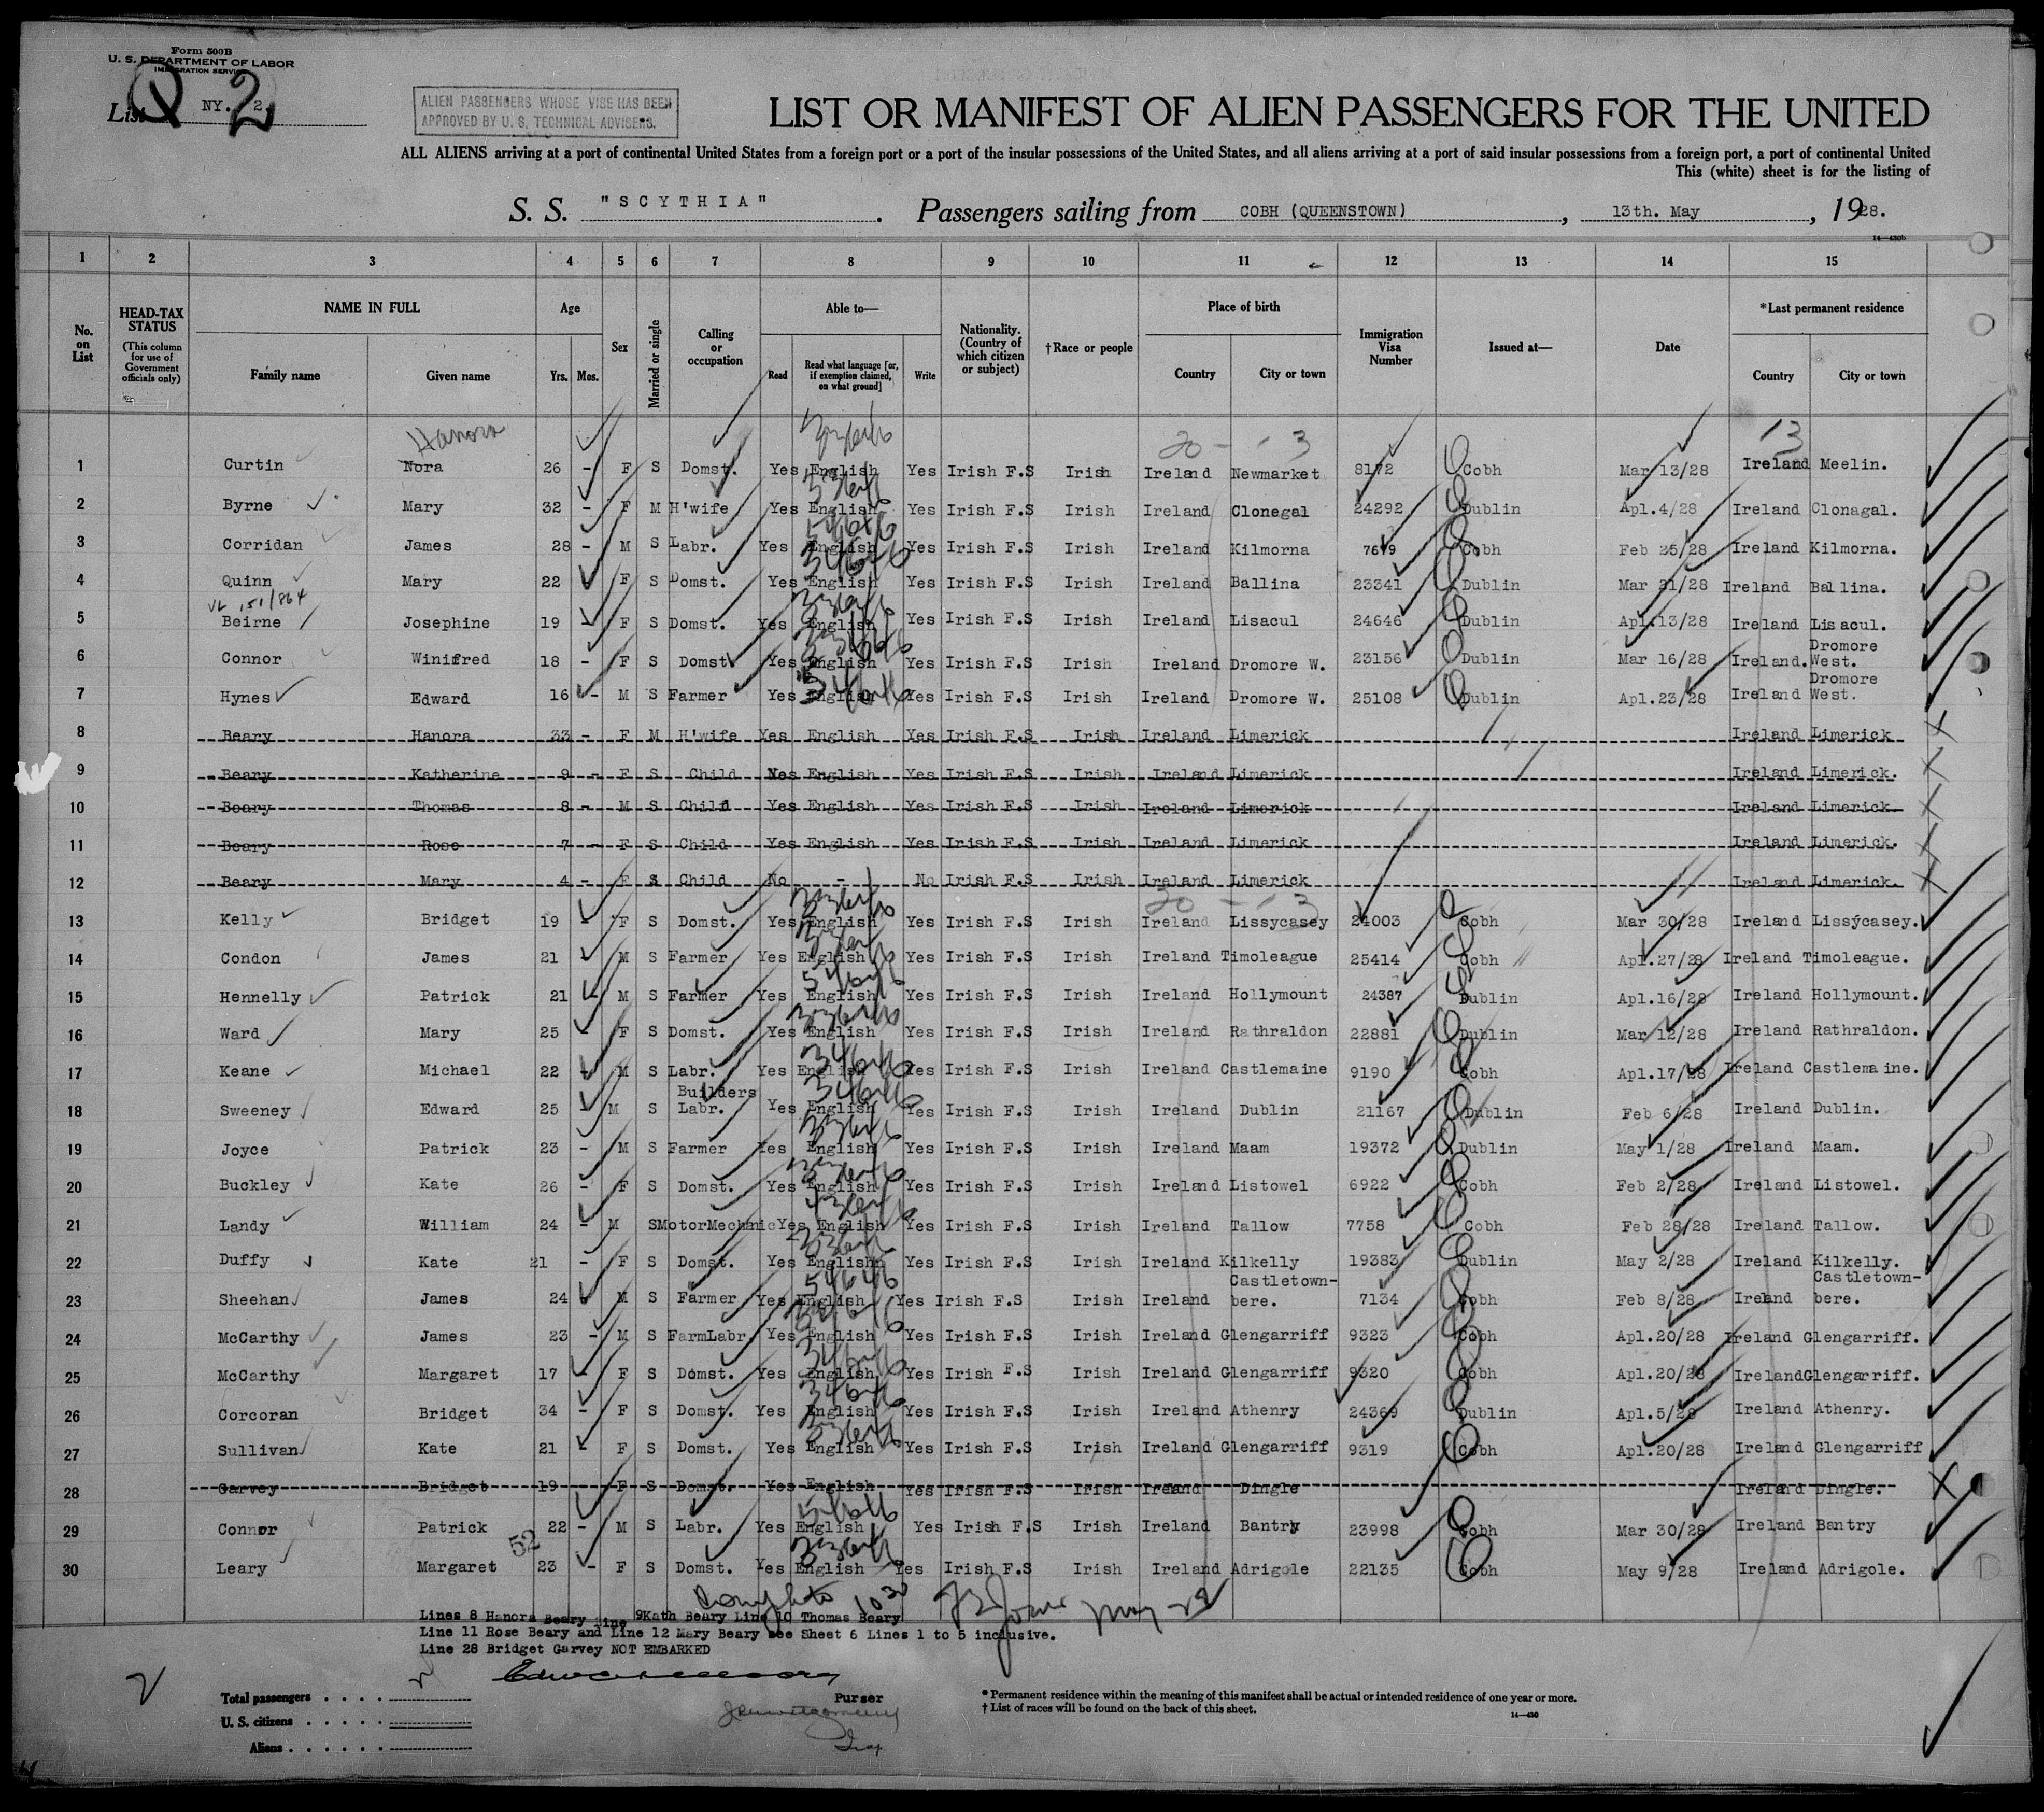 Form 500B
U. S. DEPARTMENT OF LABOR
IMMIGRATION SERVICE
List Q NY. 2. 2
ALIEN PASSENGERS WHOSE VISE HAS BEEN
APPROVED BY U. S. TECHNICAL ADVISERS.
LIST OR MANIFEST OF ALIEN PASSENGERS FOR THE UNITED
ALL ALIENS arriving at a port of continental United States from a foreign port or a port of the insular possessions of the United States, and all aliens arriving at a port of said insular possessions from a foreign port, a port of continental United
This (white) sheet is for the listing of
S. S. "SCYTHIA". Passengers sailing from COBH (QUEENSTOWN), 13th. May, 1928.
14—430b
1 2 3 4 5 6 7 8 9 10 11 12 13 14 15
No. on List
HEAD-TAX STATUS
(This column for use of Government officials only)
NAME IN FULL
Family name Given name
Age
Yrs. Mos.
Sex
Married or single
Calling or occupation
Able to—
Read
Read what language [or, if exemption claimed, on what ground]
Write
Nationality. (Country of which citizen or subject)
†Race or people
Place of birth
Country City or town
Immigration Visa Number
Issued at—
Date
*Last permanent residence
Country City or town
Hanora 20 - - 3 13
1 Curtin Nora 26 - F S Domst. Yes English Yes Irish F.S Irish Ireland Newmarket 8172 Cobh Mar 13/28 Ireland Meelin.
2 Byrne Mary 32 - F M H'wife Yes English Yes Irish F.S Irish Ireland Clonegal 24292 Dublin Apl.4/28 Ireland Clonagal.
3 Corridan James 28 - M S Labr. Yes English Yes Irish F.S Irish Ireland Kilmorna 7619 Cobh Feb 25/28 Ireland Kilmorna.
4 Quinn Mary 22 F S Domst. Yes English Yes Irish F.S Irish Ireland Ballina 23341 Dublin Mar 31/28 Ireland Ballina.
VL 151/864
5 Beirne Josephine 19 F S Domst. Yes English Yes Irish F.S Irish Ireland Lisacul 24646 Dublin Apl.13/28 Ireland Lisacul.
6 Connor Winifred 18 - F S Domst. Yes English Yes Irish F.S Irish Ireland Dromore W. 23156 Dublin Mar 16/28 Ireland. Dromore West.
7 Hynes Edward 16 - M S Farmer Yes English Yes Irish F.S Irish Ireland Dromore W. 25108 Dublin Apl.23/28 Ireland Dromore West.
8 Beary Hanora 33 - F M H'wife Yes English Yes Irish F.S Irish Ireland Limerick Ireland Limerick
9 Beary Katherine 9 - F S Child Yes English Yes Irish F.S Irish Ireland Limerick Ireland Limerick.
10 Beary Thomas 8 - M S Child Yes English Yes Irish F.S Irish Ireland Limerick Ireland Limerick.
11 Beary Rose 7 - F S Child Yes English Yes Irish F.S Irish Ireland Limerick Ireland Limerick.
12 Beary Mary 4 - F S Child No - No Irish F.S Irish Ireland Limerick Ireland Limerick.
20 - - 3
13 Kelly Bridget 19 - F S Domst. Yes English Yes Irish F.S Irish Ireland Lissycasey 24003 Cobh Mar 30/28 Ireland Lissycasey.
14 Condon James 21 M S Farmer Yes English Yes Irish F.S Irish Ireland Timoleague 25414 Cobh Apl.27/28 Ireland Timoleague.
15 Hennelly Patrick 21 - M S Farmer Yes English Yes Irish F.S Irish Ireland Hollymount 24387 Dublin Apl.16/28 Ireland Hollymount.
16 Ward Mary 25 - F S Domst. Yes English Yes Irish F.S Irish Ireland Rathraldon 22881 Dublin Mar 12/28 Ireland Rathraldon.
17 Keane Michael 22 M S Labr. Yes English Yes Irish F.S Irish Ireland Castlemaine 9190 Cobh Apl.17/28 Ireland Castlemaine.
18 Sweeney Edward 25 - M S Builders Labr. Yes English Yes Irish F.S Irish Ireland Dublin 21167 Dublin Feb 6/28 Ireland Dublin.
19 Joyce Patrick 23 - M S Farmer Yes English Yes Irish F.S Irish Ireland Maam 19372 Dublin May 1/28 Ireland Maam.
20 Buckley Kate 26 - F S Domst. Yes English Yes Irish F.S Irish Ireland Listowel 6922 Cobh Feb 2/28 Ireland Listowel.
21 Landy William 24 - M S MotorMechanic Yes English Yes Irish F.S Irish Ireland Tallow 7758 Cobh Feb 28/28 Ireland Tallow.
22 Duffy Kate 21 - F S Domst. Yes English Yes Irish F.S Irish Ireland Kilkelly 19383 Dublin May 2/28 Ireland Kilkelly.
23 Sheehan James 24 M S Farmer Yes English Yes Irish F.S Irish Ireland Castletown-bere. 7134 Cobh Feb 8/28 Ireland Castletown-bere.
24 McCarthy James 23 - M S FarmLabr. Yes English Yes Irish F.S Irish Ireland Glengarriff 9323 Cobh Apl.20/28 Ireland Glengarriff.
25 McCarthy Margaret 17 - F S Domst. Yes English Yes Irish F.S Irish Ireland Glengarriff 9320 Cobh Apl.20/28 Ireland Glengarriff.
26 Corcoran Bridget 34 - F S Domst. Yes English Yes Irish F.S Irish Ireland Athenry 24369 Dublin Apl.5/28 Ireland Athenry.
27 Sullivan Kate 21 - F S Domst. Yes English Yes Irish F.S Irish Ireland Glengarriff 9319 Cobh Apl.20/28 Ireland Glengarriff
28 Garvey Bridget 19 - F S Domst. Yes English Yes Irish F.S Irish Ireland Dingle Ireland Dingle.
29 Connor Patrick 22 - M S Labr. Yes English Yes Irish F.S Irish Ireland Bantry 23998 Cobh Mar 30/28 Ireland Bantry
52
30 Leary Margaret 23 - F S Domst. Yes English Yes Irish F.S Irish Ireland Adrigole 22135 Cobh May 9/28 Ireland Adrigole.
Lines 8 Hanora Beary Line 9Kath Beary Line 10 Thomas Beary
Line 11 Rose Beary and Line 12 Mary Beary see Sheet 6 Lines 1 to 5 inclusive.
Line 28 Bridget Garvey NOT EMBARKED
Purser
Total passengers
U. S. citizens
Aliens
* Permanent residence within the meaning of this manifest shall be actual or intended residence of one year or more.
† List of races will be found on the back of this sheet.
14—430